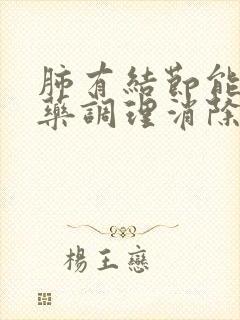 肺有結節能
藥調理消除
楊王戀